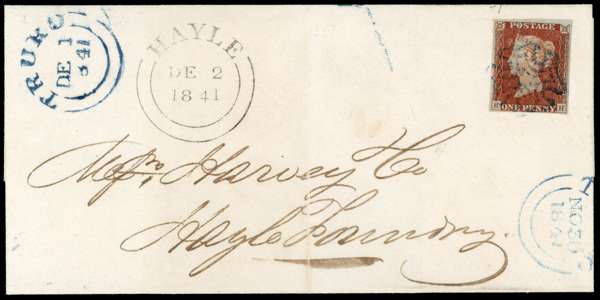 TRURO
DE 1
1841
HAYLE
DE 2
1841
POSTAGE
ONE PENNY
Messrs. Harvey & Co
Hayle Foundry.
NO 30
1841